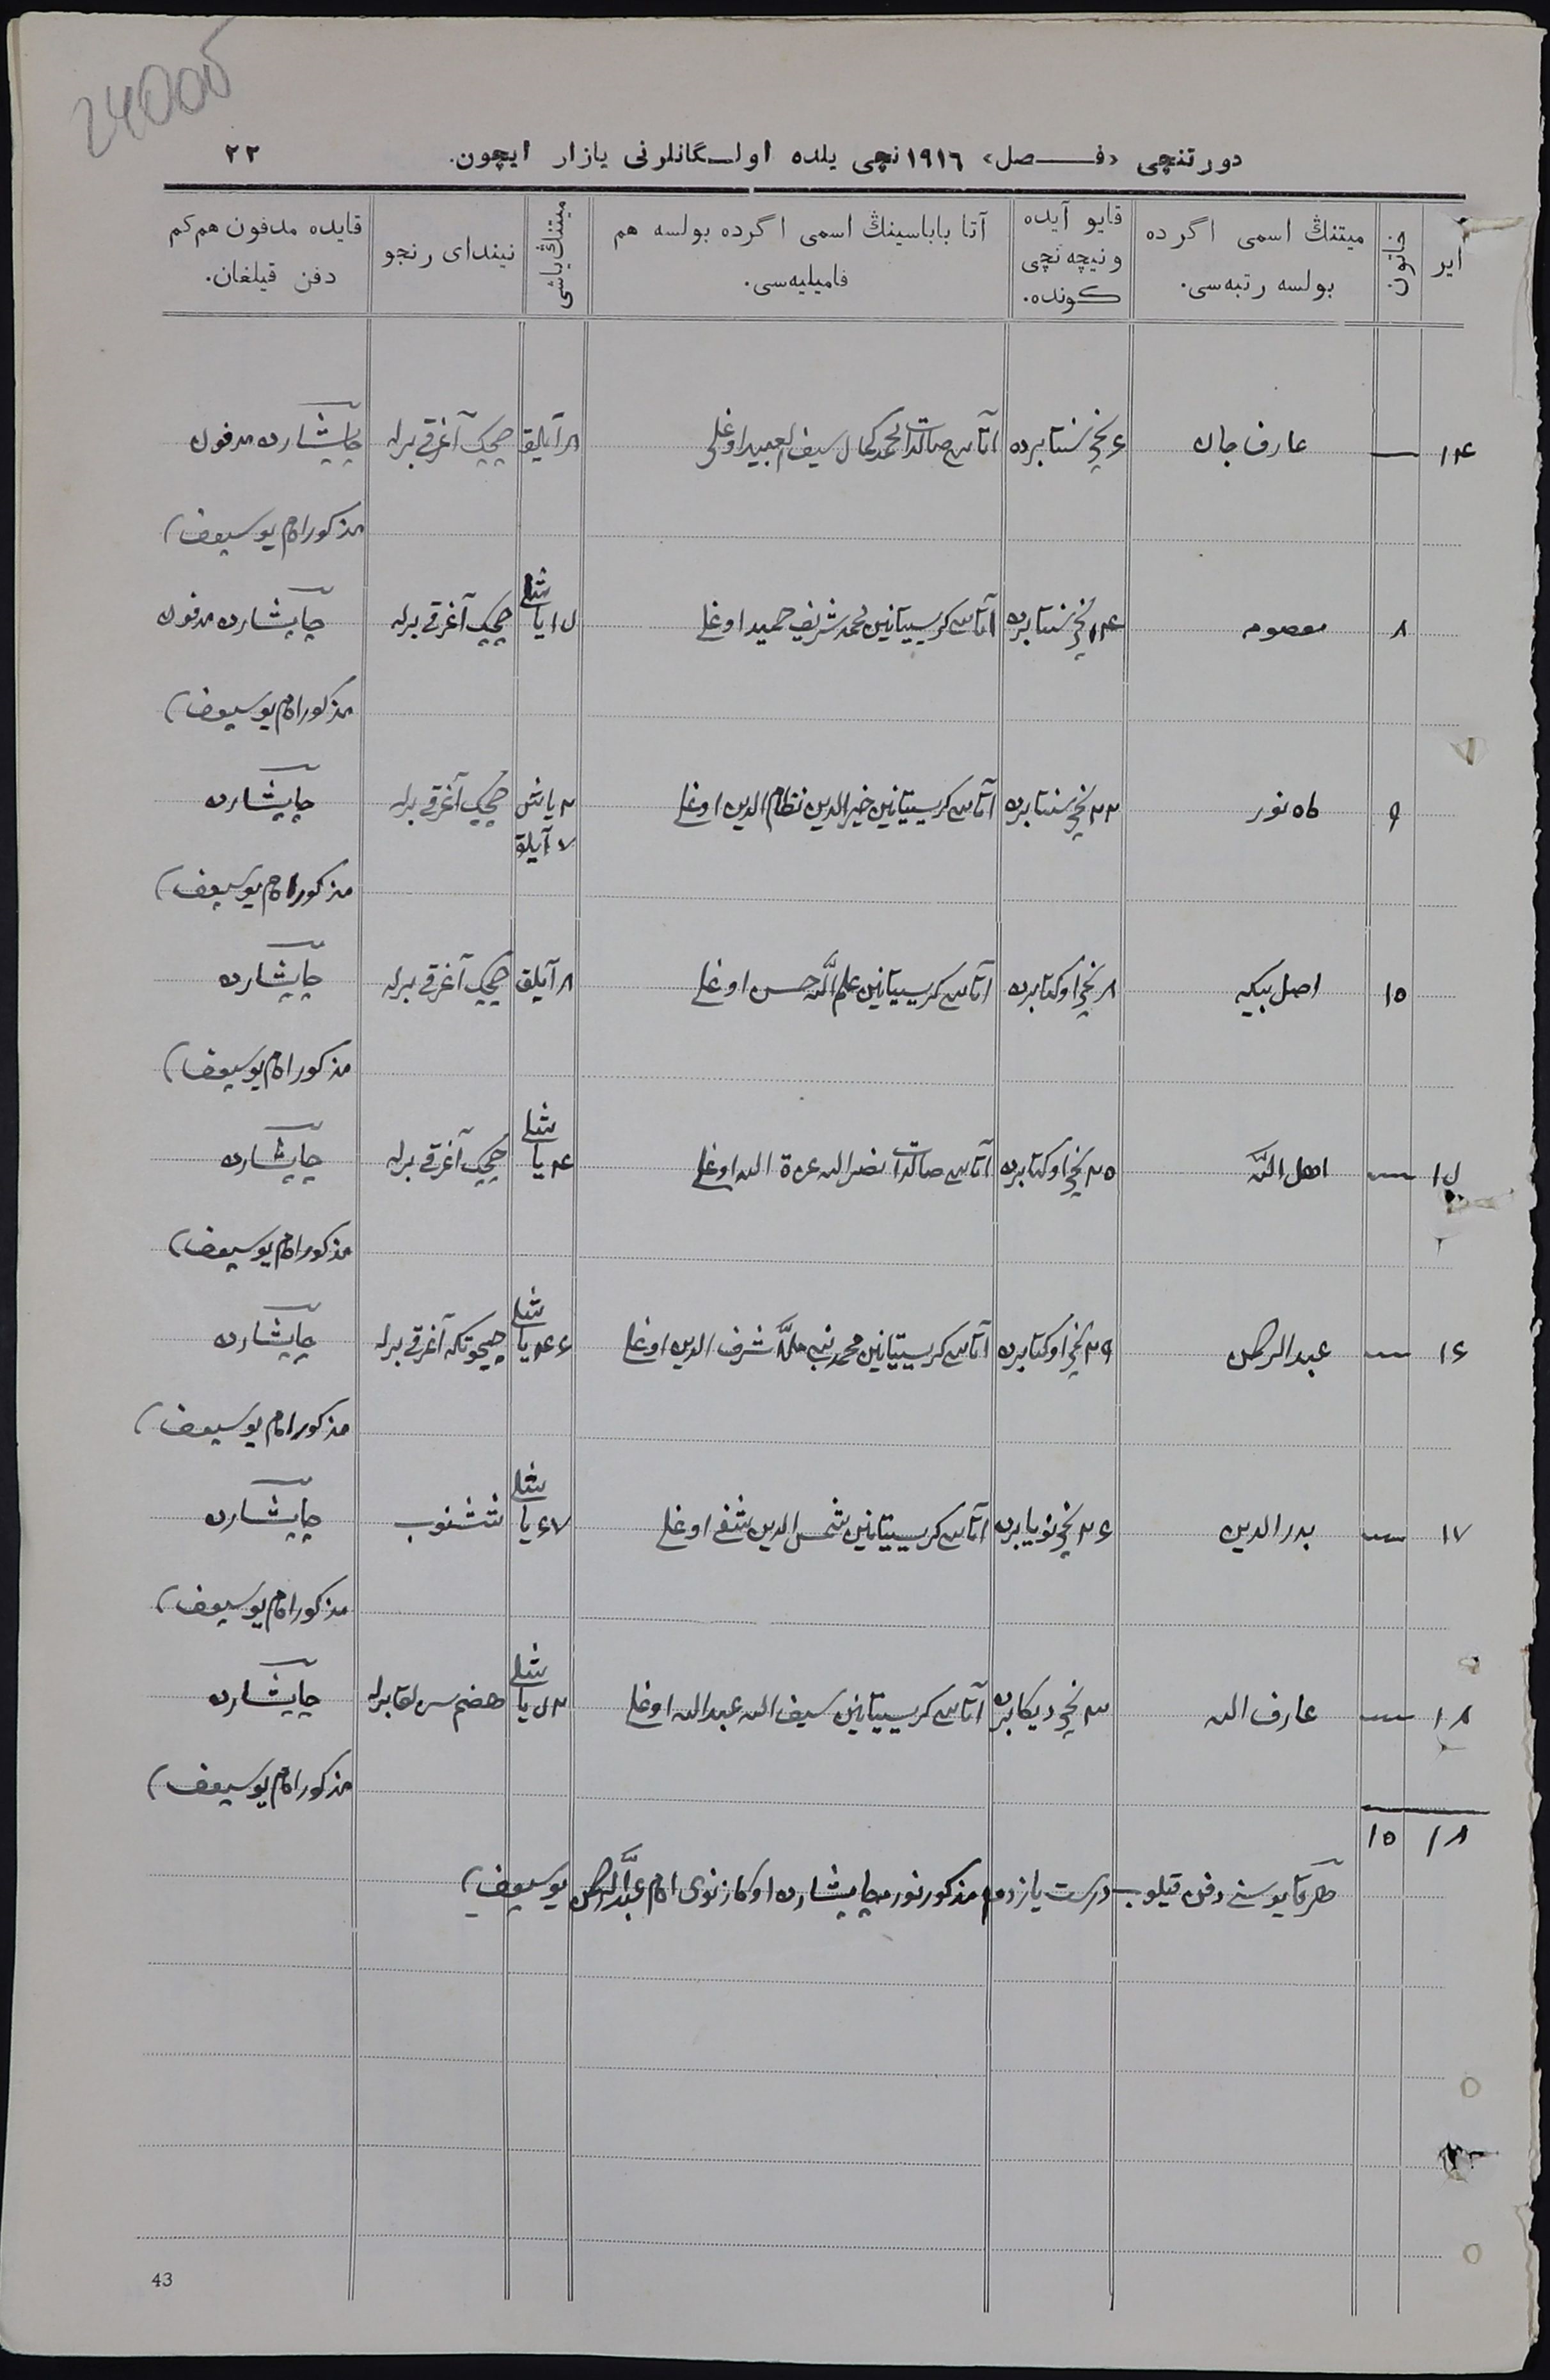 24000
دورتنچی «فـــصل» ١٩١٦نچی یلده اولـگانلرنی یازار ایچون. ٢٢
ایر
خاتون
میتنڭ اسمی اگرده بولسه رتبه‌سی.
قایو آیده ونیچه نچی كونده.
آتا باباسینڭ اسمی اگرده بولسه هم فامیلیه‌سی.
میتنڭ یاشی
نیندای رنجو
قایده مدفون هم كم دفن قیلغان.
١٤ — عارف جان ٦نچی سنتابرده آتاسی صالدات محمد كمال سیف اوغلی ٨ آیلیق چیچك آغرقی برله چاپشارده مدفون
مذكور امام یوسیوف)
٨ معصومه ١٤نچی سنتابرده آتاسی كریستیانین محمد شریف حمید اوغلی یاشلی چیچك آغرقی برله چاپشارده مدفون
مذكور امام یوسیوف)
٩ ماه نور ٢٢نچی سنتابرده آتاسی كریستیانین خیرالدین نظام الدین اوغلی ٢ یاش ٧ آیلق چیچك آغرقی برله چاپشارده
مذكور امام یوسیوف)
١٥ اصل بیكه ٨نچی اوكتابرده آتاسی كریستیانین علم الله حسن اوغلی ٨ آیلق چیچك آغرقی برله چاپشارده
مذكور امام یوسیوف)
— اهل الله ٢٥نچی اوكتابرده آتاسی صالدات نصرالله عزة الله اوغلی ٤ یاشلی چیچك آغرقی برله چاپشارده
مذكور امام یوسیوف)
١٦ — عبدالرحمن ٢٩نچی اوكتابرده آتاسی كریستیانین محمد شرف الدین اوغلی ٤٦ یاشلی آغرقی برله چاپشارده
مذكور امام یوسیوف)
١٧ — بدرالدین ٢٦نچی نویابرده آتاسی كریستیانین شمس الدین اوغلی ٦٧ یاشلی چاپشارده
مذكور امام یوسیوف)
١٨ — عارف الله نچی دیكابرده آتاسی كریستیانین سیف الله عبدالله اوغلی یاشلی هضم برله چاپشارده
مذكور امام یوسیوف)
١٨ ١٥
هرقایوسنی دفن قیلوب درست یازدم مذكور چاپشارده اوكازنوی امام عبدالرحمن یوسیوف)
43